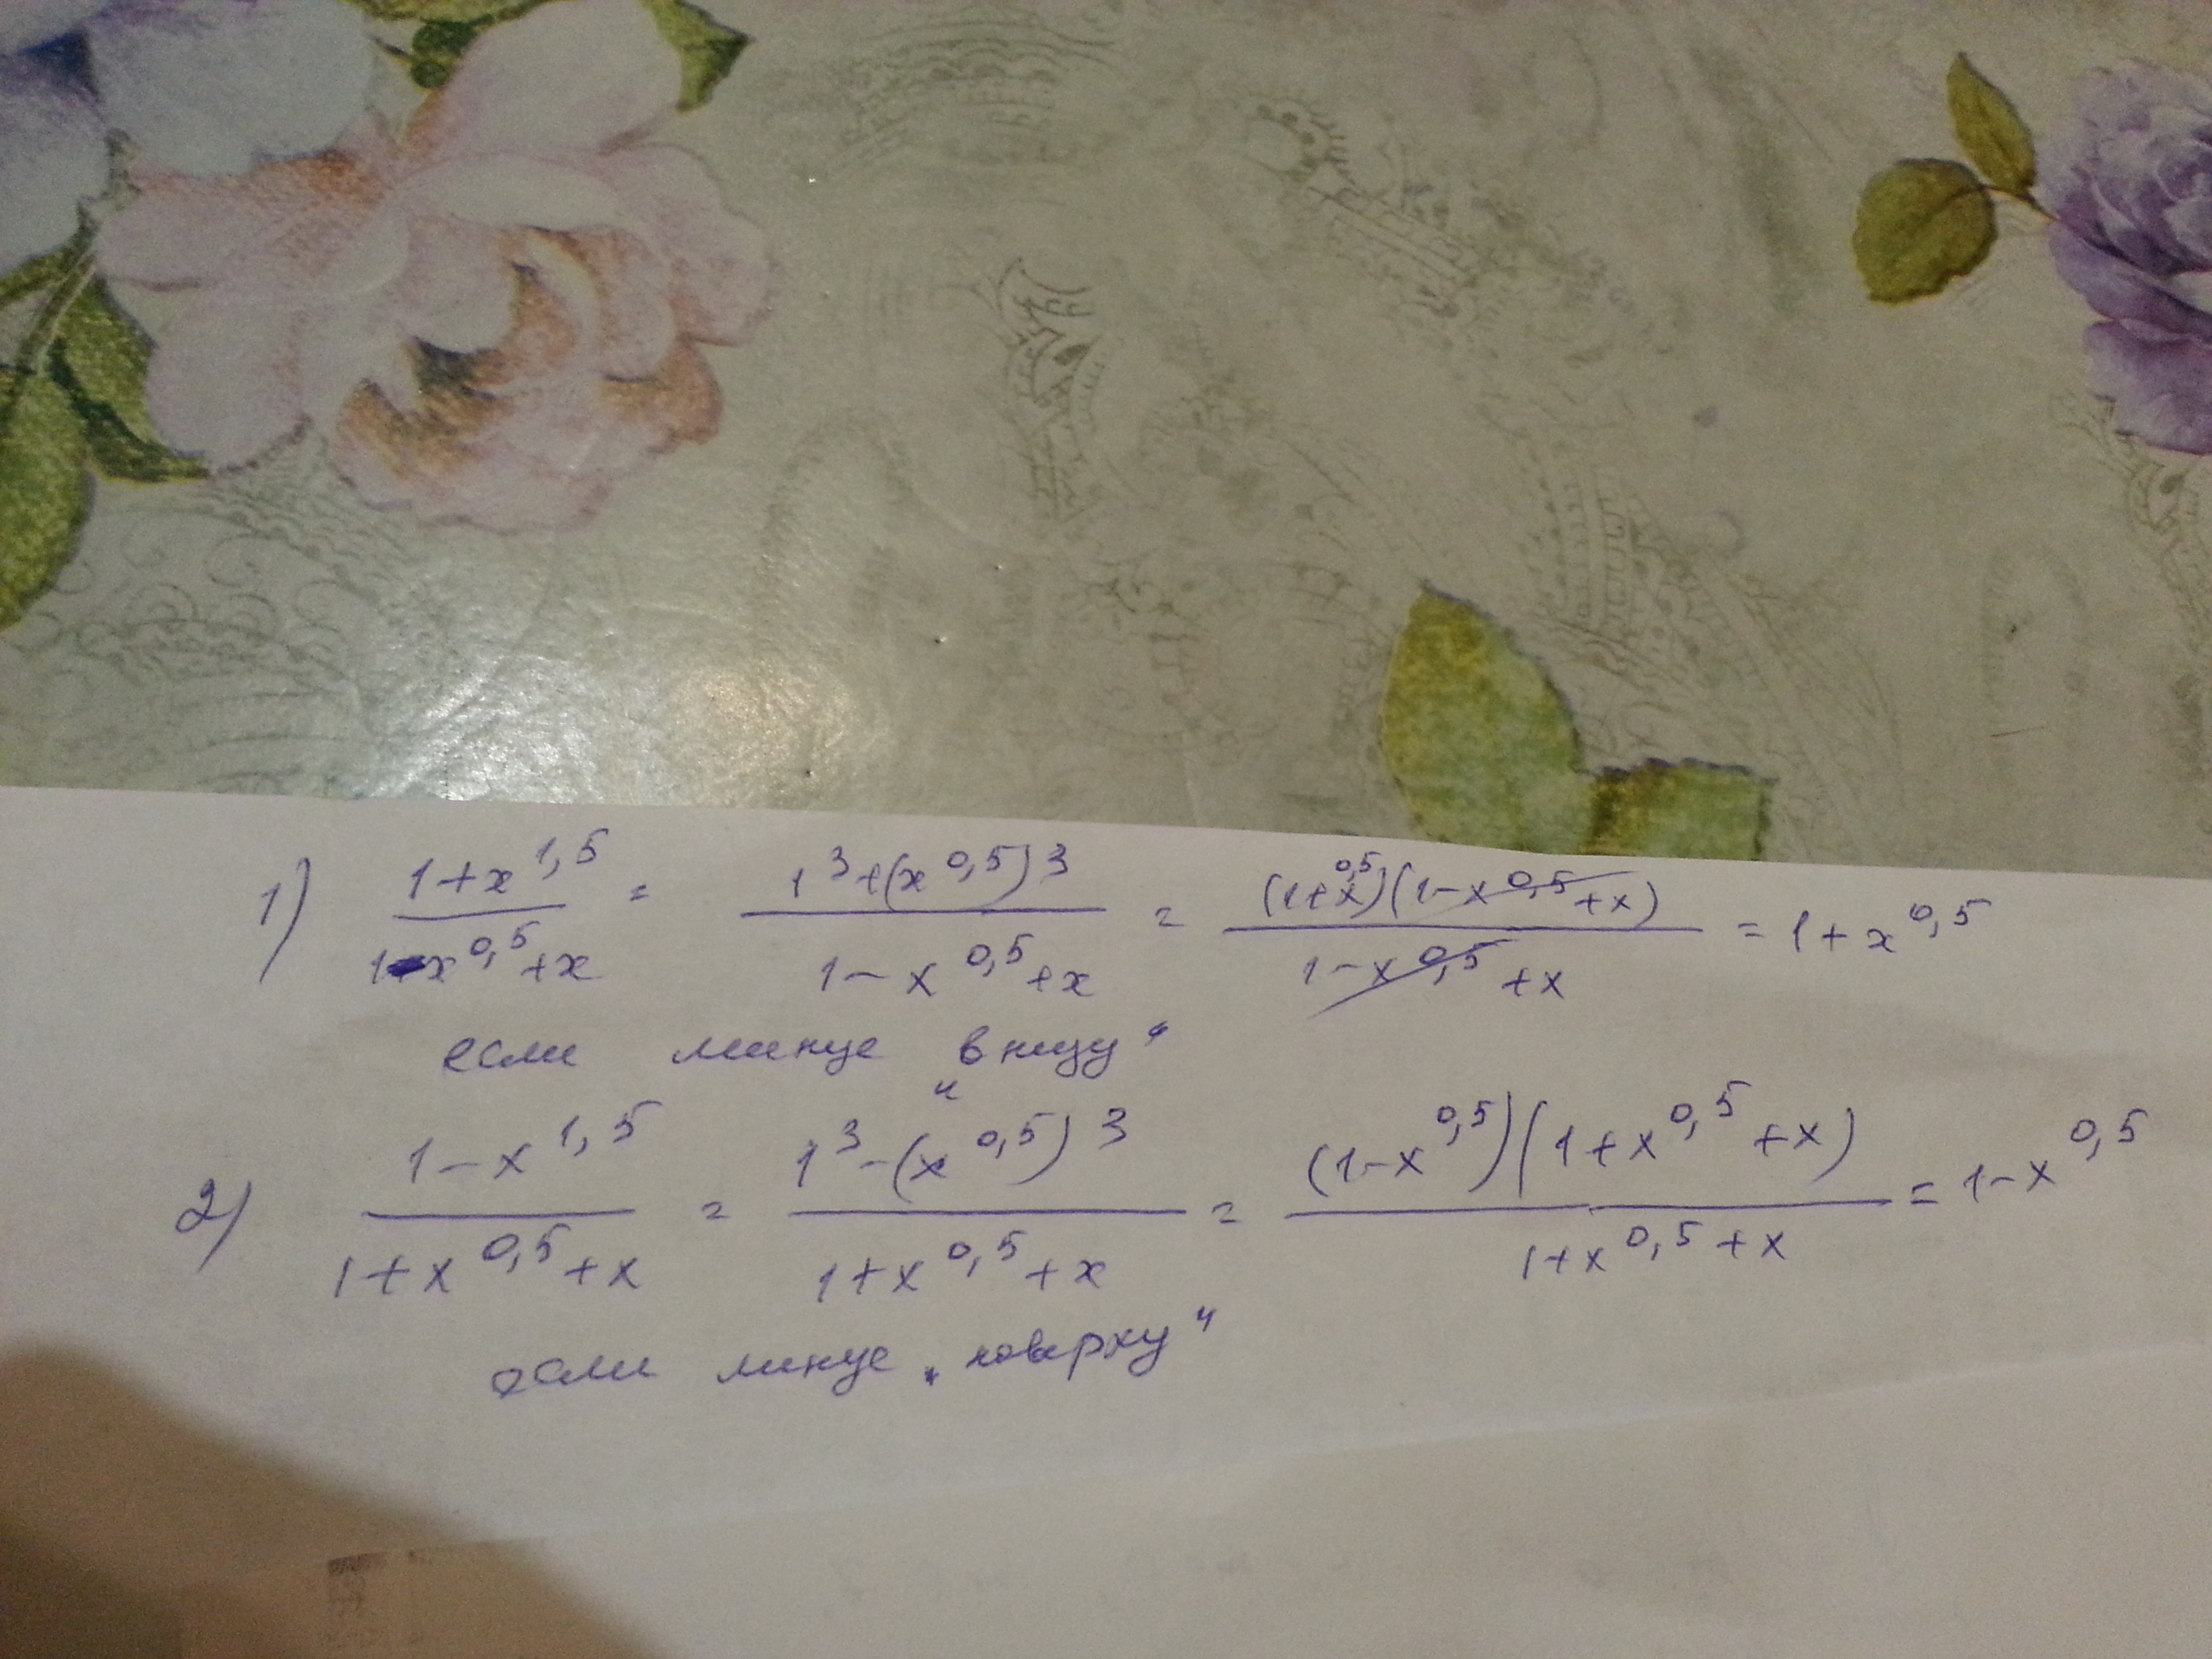 1) (1+x^1,5)/(1-x^0,5+x) = (1^3+(x^0,5)^3)/(1-x^0,5+x) = ((1+x^0,5)(1-x^0,5+x))/(1-x^0,5+x) = 1+x^0,5
если минус "внизу"
2) (1-x^1,5)/(1+x^0,5+x) = (1^3-(x^0,5)^3)/(1+x^0,5+x) = ((1-x^0,5)(1+x^0,5+x))/(1+x^0,5+x) = 1-x^0,5
если минус "поверху"